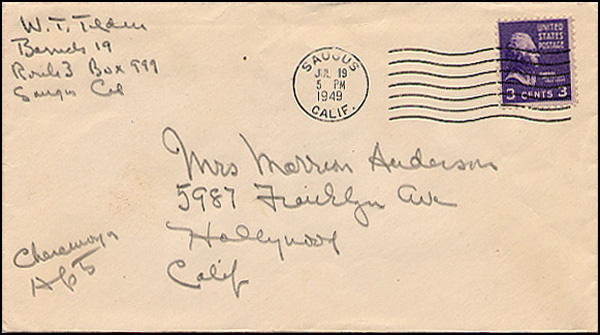 W. T. Team
Barracks 19
Route 3 Box 999
Saugus Cal
SAUGUS
JUL 19
5 PM
1949
CALIF.
UNITED
STATES
POSTAGE
3 CENTS 3
Mrs Marrion Anderson
5987 Franklyn Ave
Hollywood
Calif
Apt 5